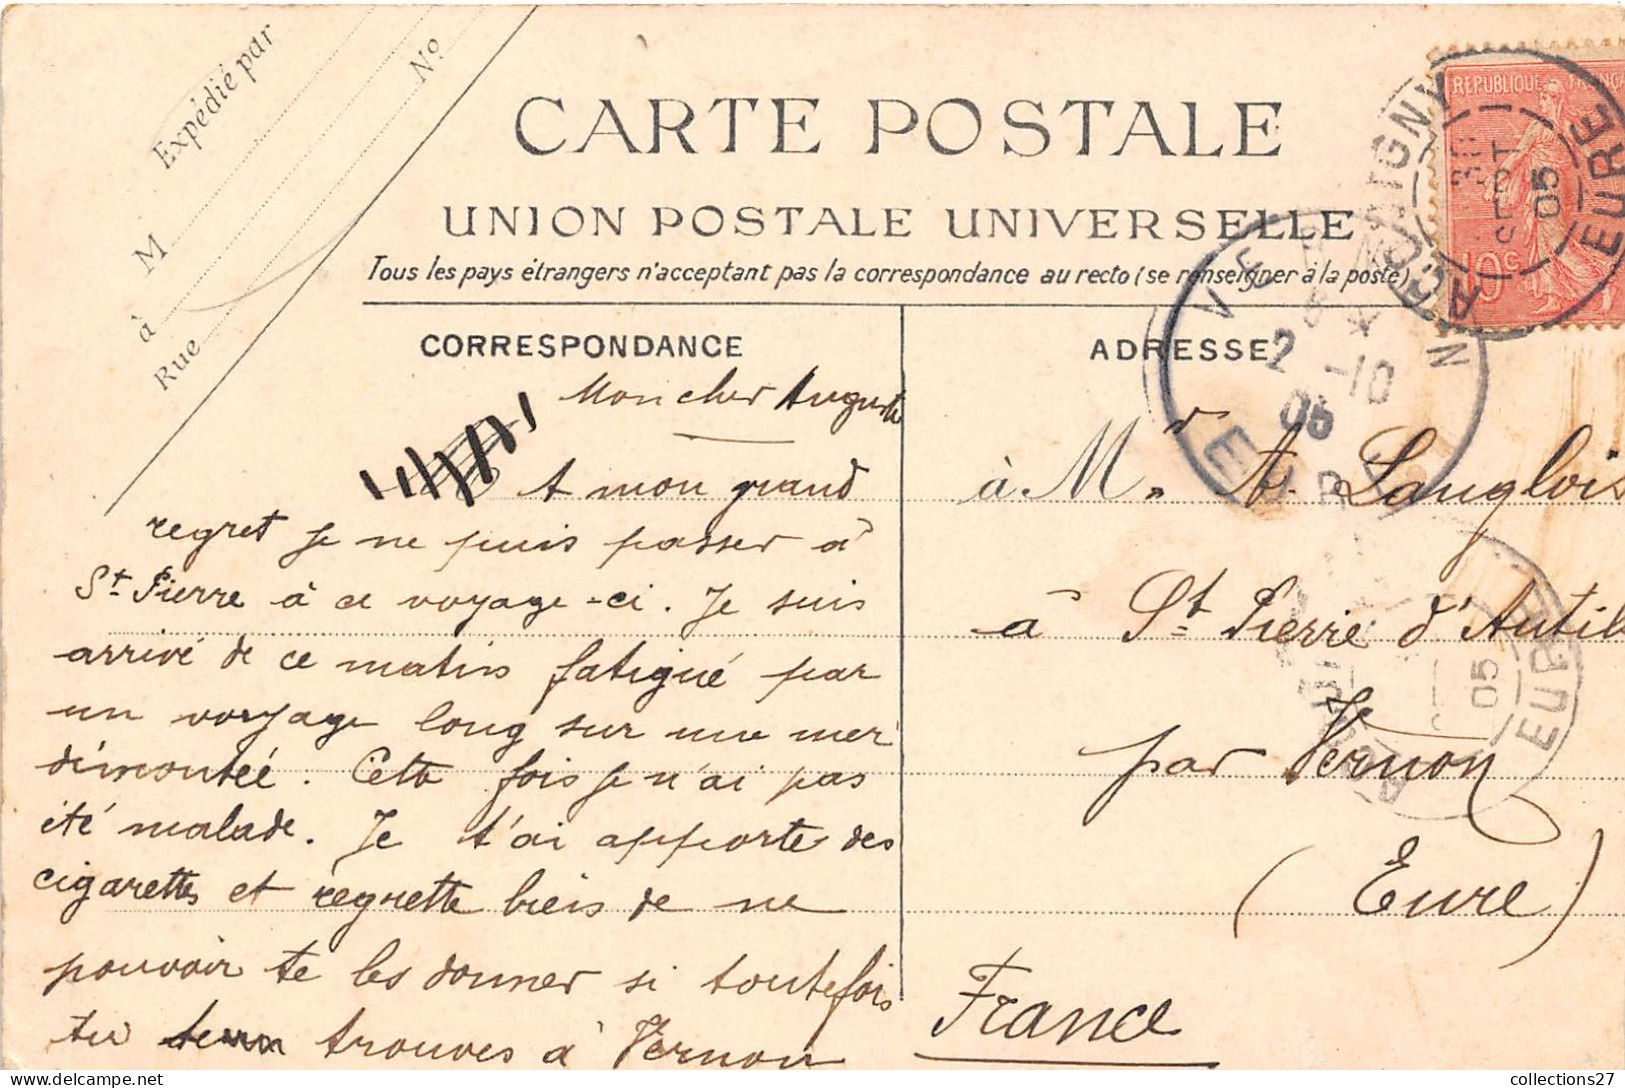 Expédié par
M
à
Rue
No
CARTE POSTALE
UNION POSTALE UNIVERSELLE
Tous les pays étrangers n'acceptant pas la correspondance au recto (se renseigner à la poste)
CORRESPONDANCE
Mon cher Auguste
A mon grand
regret je ne puis passer à
St Pierre à ce voyage-ci. Je suis
arrivé de ce matin fatigué par
un voyage long sur une mer
démontée. Cette fois je n'ai pas
été malade. Je t'ai apporté des
cigarettes et regrette bien de ne
pouvoir te les donner si toutefois
tu trouves à Vernon
ADRESSE
à Mr A. Langlois
à St Pierre d'Autil
par Vernon
(Eure)
France
REPUBLIQUE FRANCA
10c
ACQUIGNY
30
SEPT
05
EURE
VERNON
2 -10
05
EURE
05
EURE
collections27